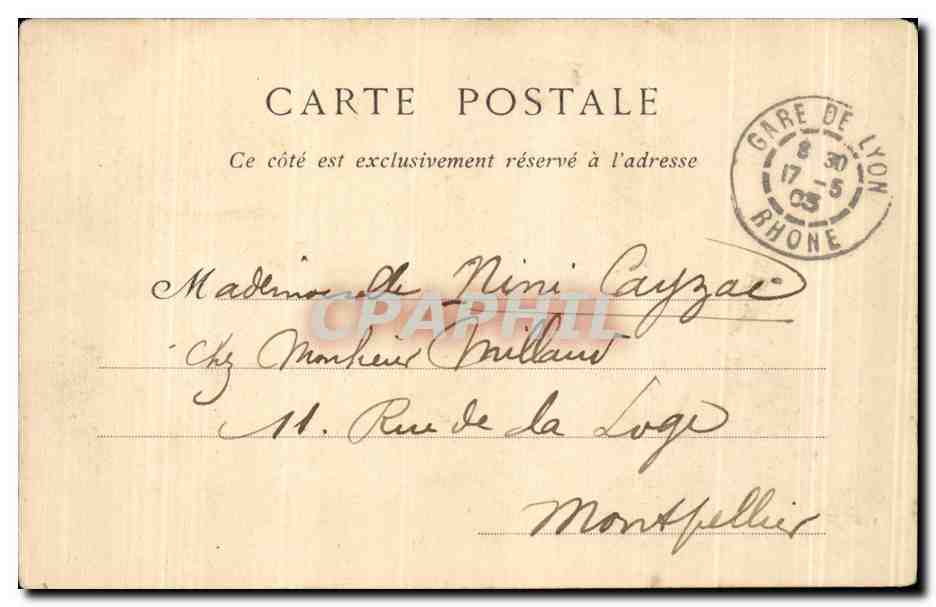 CARTE POSTALE
Ce côté est exclusivement réservé à l'adresse
GARE DE LYON
8 30
17 - 5
03
RHONE
Mademoiselle Nini Cayzac
CPAPHIL
Chez Monsieur Millaud
11. Rue de la Loge
Montpellier